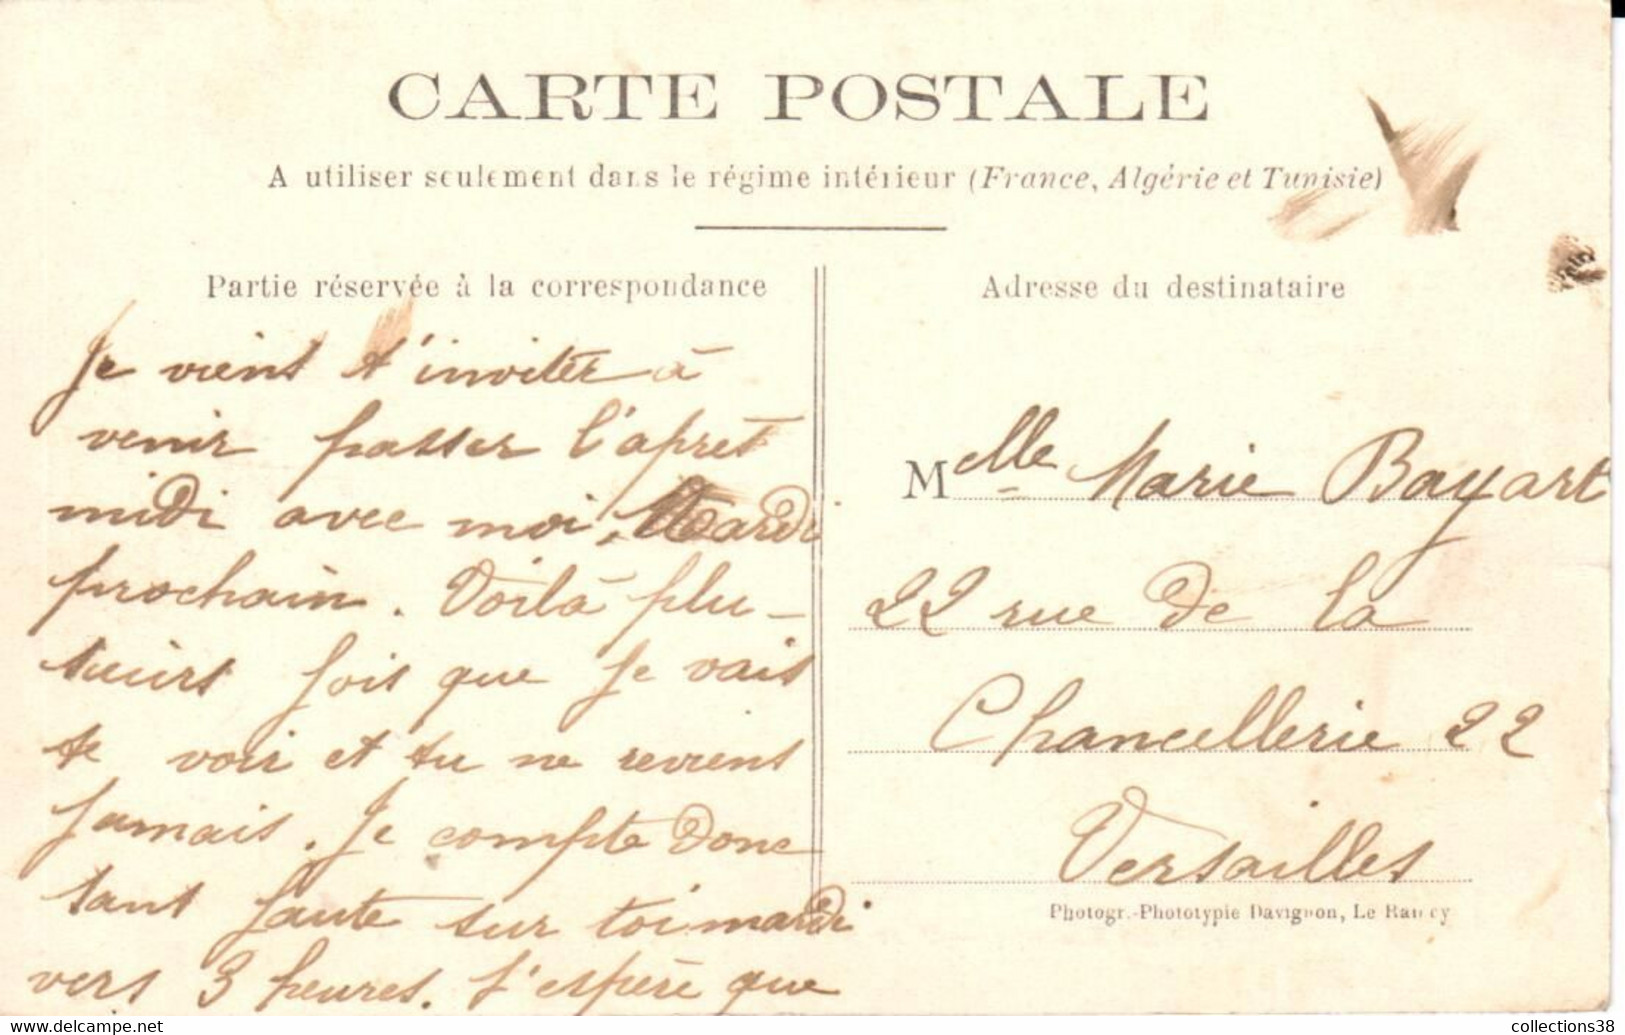 CARTE POSTALE
A utiliser seulement dans le régime intérieur (France, Algérie et Tunisie)
Partie réservée à la correspondance
Je viens t'inviter à
venir passer l'apret
midi avec moi, Mardi
prochain. Voilà plu-
sieurs fois que je vais
te voir et tu ne reviens
jamais. Je compte donc
sans faute sur toi mardi
vers 3 heures. J'espère que
Adresse du destinataire
Melle Marie Bayart
22 rue de la
Chancellerie 22
Versailles
Photogr.-Phototypie Davignon, Le Raincy
collections38